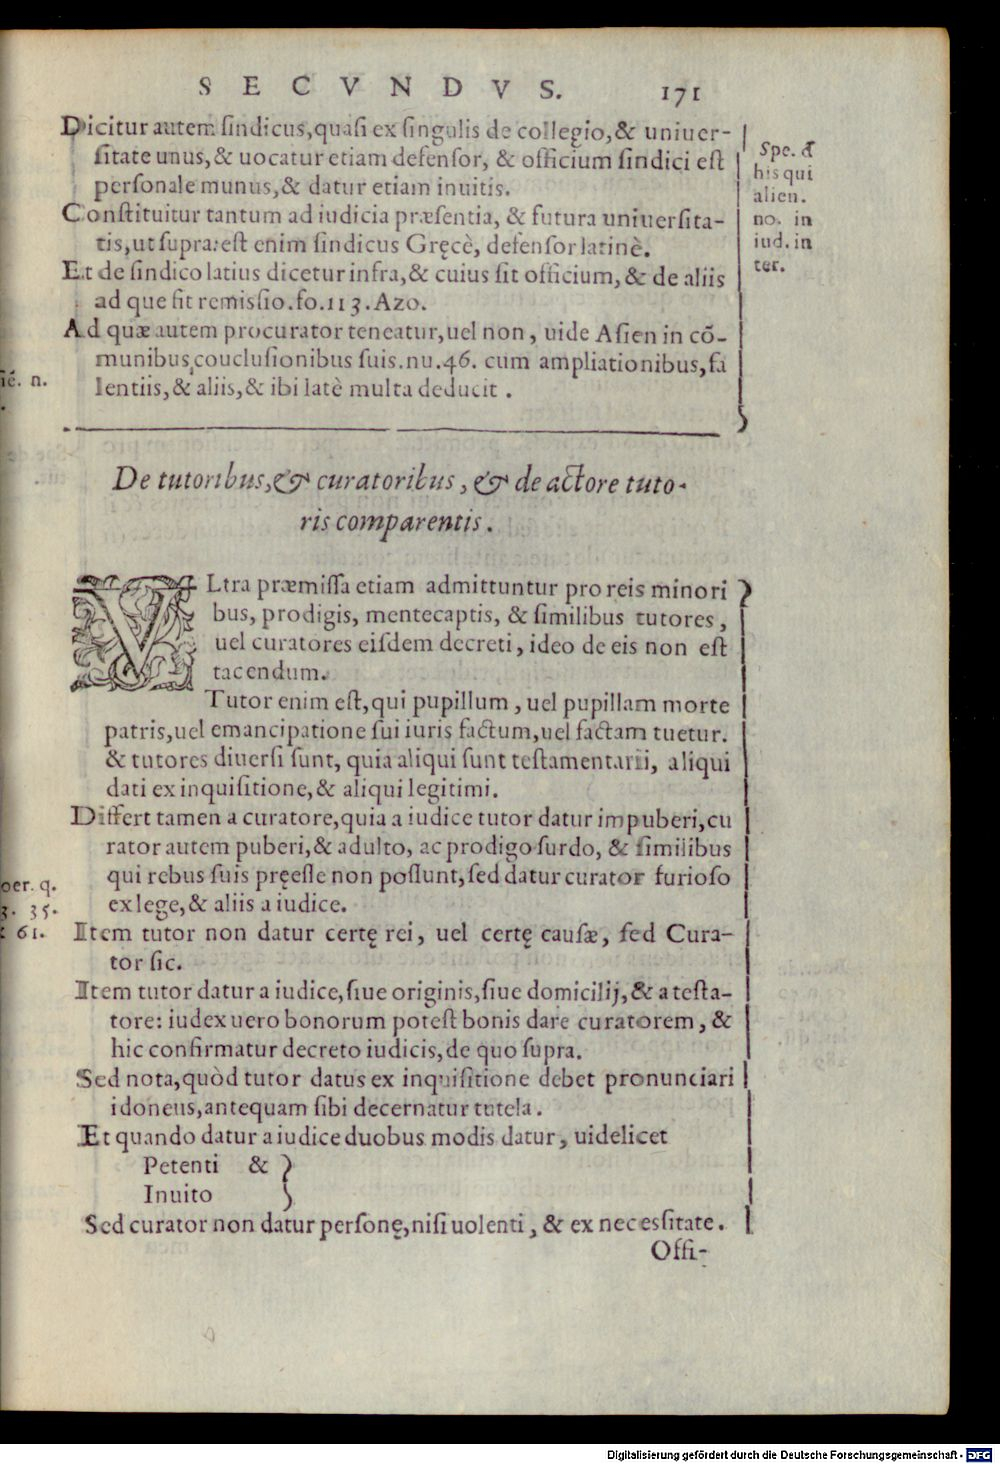 SECVNDVS. 171
Dicitur autem sindicus, quasi ex singulis de collegio, & uniuer-
sitate unus, & uocatur etiam defensor, & officium sindici est
personale munus, & datur etiam inuitis.
Constituitur tantum ad iudicia præsentia, & futura uniuersita-
tis, ut supra: est enim sindicus Gręcè, defensor latinè.
Et de sindico latius dicetur infra, & cuius sit officium, & de aliis
ad que fit remissio. fo. 113. Azo.
Ad quæ autem procurator teneatur, uel non, uide Asien in cō-
munibus couclusionibus suis. nu. 46. cum ampliationibus, fa
lentiis, & aliis, & ibi latè multa deducit.
Spe. &
his qui
alien.
no. in
iud. in
ter.
n.
De tutoribus, & curatoribus, & de actore tuto-
ris comparentis.
VLtra præmissa etiam admittuntur pro reis minori
bus, prodigis, mentecaptis, & similibus tutores,
uel curatores eisdem decreti, ideo de eis non est
tacendum.
Tutor enim est, qui pupillum, uel pupillam morte
patris, uel emancipatione sui iuris factum, uel factam tuetur.
& tutores diuersi sunt, quia aliqui sunt testamentarii, aliqui
dati ex inquisitione, & aliqui legitimi.
Differt tamen a curatore, quia a iudice tutor datur impuberi, cu
rator autem puberi, & adulto, ac prodigo surdo, & similibus
qui rebus suis pręesse non possunt, sed datur curator furioso
ex lege, & aliis a iudice.
Item tutor non datur certę rei, uel certę causæ, sed Cura-
tor sic.
Item tutor datur a iudice, siue originis, siue domicilij, & a testa-
tore: iudex uero bonorum potest bonis dare curatorem, &
hic confirmatur decreto iudicis, de quo supra.
Sed nota, quòd tutor datus ex inquisitione debet pronunciari
idoneus, antequam sibi decernatur tutela.
Et quando datur a iudice duobus modis datur, uidelicet
Petenti &
Inuito
Sed curator non datur personę, nisi uolenti, & ex necessitate.
Offi-
oer. q.
3. 35.
61.
Digitalisierung gefördert durch die Deutsche Forschungsgemeinschaft - DFG